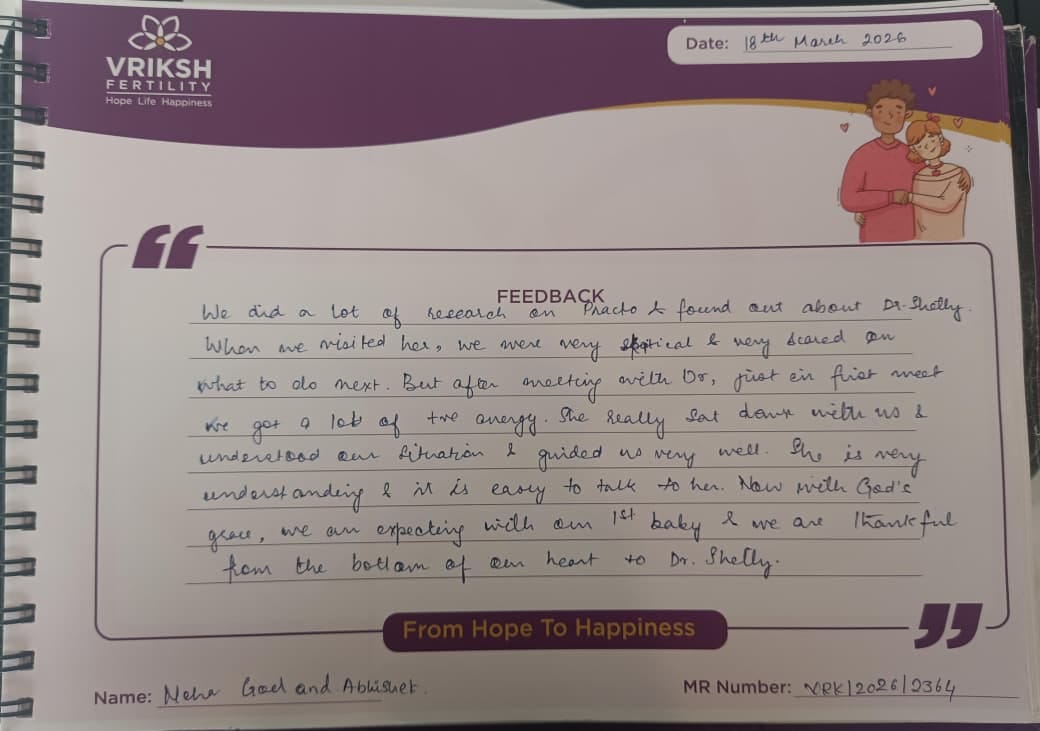 VRIKSH
FERTILITY
Hope Life Happiness
Date: 18th March 2026
FEEDBACK
We did a lot of research on Practo & found out about Dr. Shelly.
When we visited her, we were very skeptical & very scared on
what to do next. But after meeting with Dr, just in first meet
we got a lot of +ve energy. She really sat down with us &
understood our situation & guided us very well. She is very
understanding & it is easy to talk to her. Now with God's
grace, we are expecting with our 1st baby & we are thankful
from the bottom of our heart to Dr. Shelly.
From Hope To Happiness
Name: Neha Goel and Abhishek.
MR Number: VRK/2026/2364